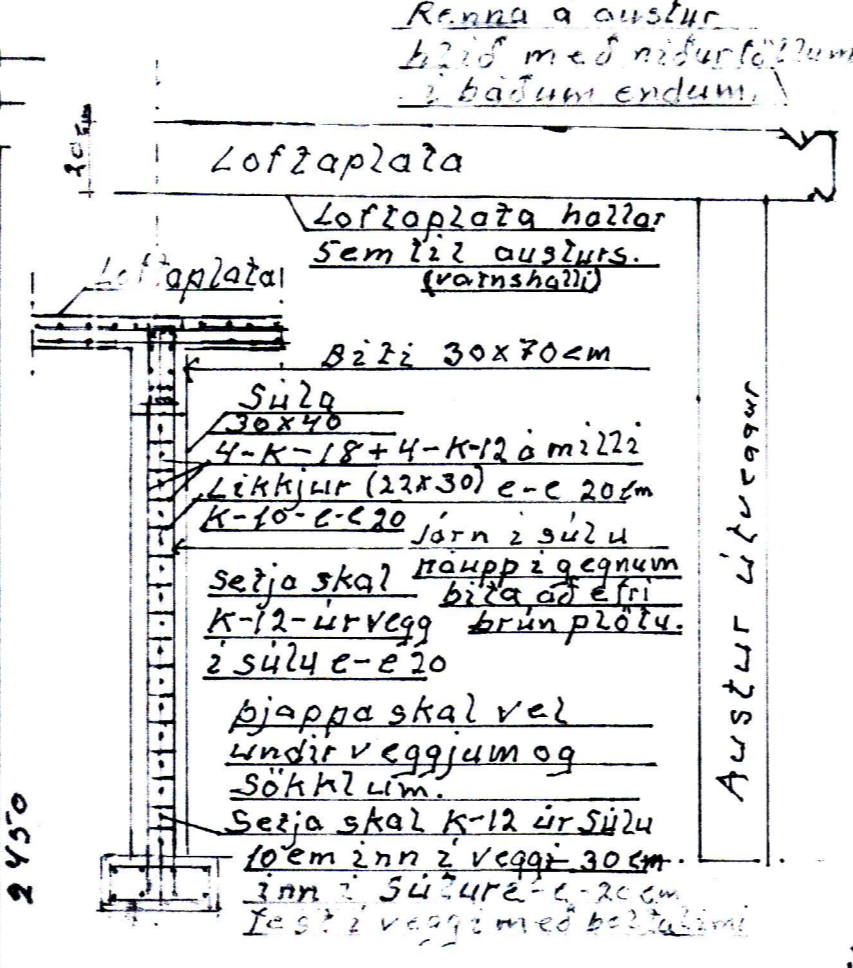 Renna a austur
hlið með niðurföllum
i báðum endum.
20 cm
Loftaplata
Loftaplata hallar
5cm til austurs.
(vatnshalli)
Loftaplata
Biti 30x70cm
Súla
30x40
4-K-18+4-K-12 á milli
Likkjur (22x30) c-c 20cm
K-10-c-c20
Járn i súlu
ná upp i gegnum
bita að efri
brún plötu.
Setja skal
K-12-úr vegg
i súlu c-c 20
þjappa skal vel
undir veggjum og
sökklum.
Setja skal K-12 úr súlu
10 cm inn i veggi 30 cm
inn i súlur c-c-20 cm
fest i veggi með
Austur útveggur
2450